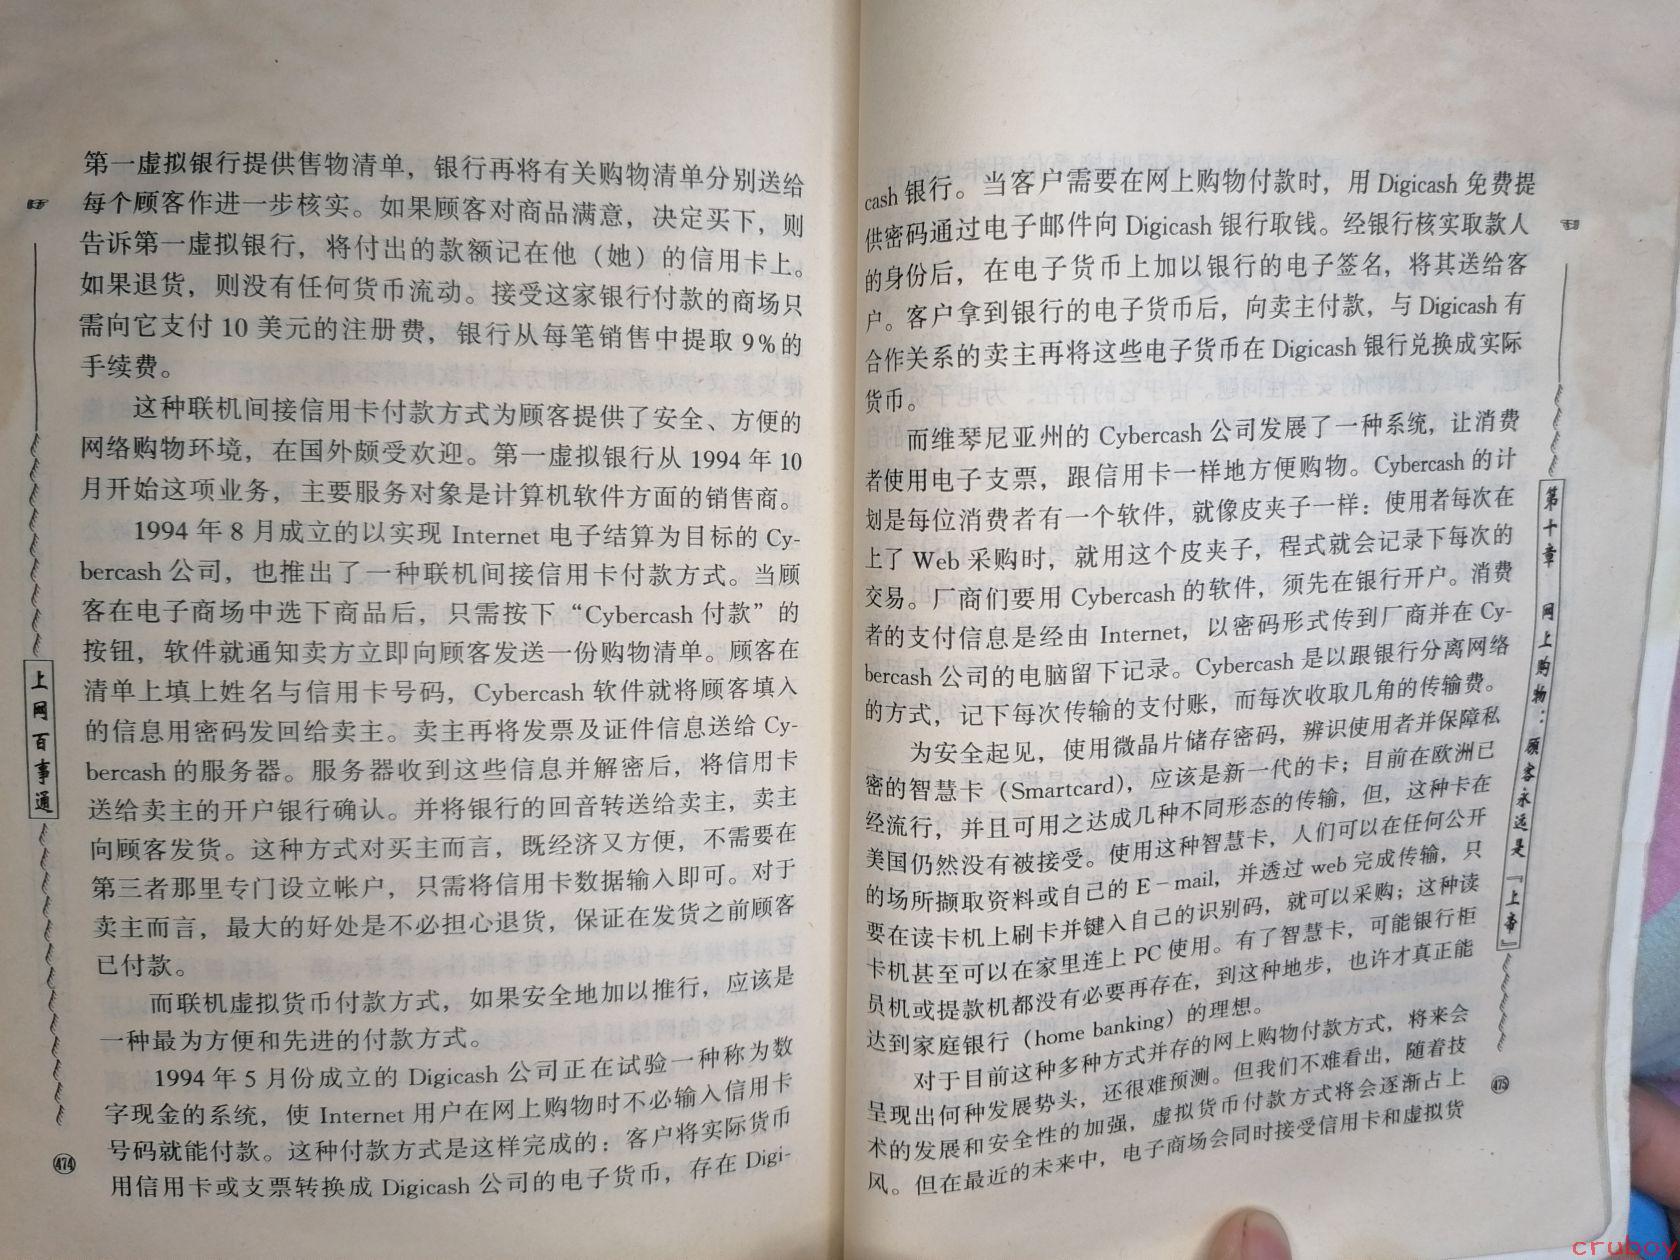 第一虚拟银行提供售物清单，银行再将有关购物清单分别送给
每个顾客作进一步核实。如果顾客对商品满意，决定买下，则
告诉第一虚拟银行，将付出的款额记在他（她）的信用卡上。
如果退货，则没有任何货币流动。接受这家银行付款的商场只
需向它支付 10 美元的注册费，银行从每笔销售中提取 9%的
手续费。
这种联机间接信用卡付款方式为顾客提供了安全、方便的
网络购物环境，在国外颇受欢迎。第一虚拟银行从 1994 年 10
月开始这项业务，主要服务对象是计算机软件方面的销售商。
1994 年 8 月成立的以实现 Internet 电子结算为目标的 Cy-
bercash 公司，也推出了一种联机间接信用卡付款方式。当顾
客在电子商场中选下商品后，只需按下“Cybercash 付款”的
按钮，软件就通知卖方立即向顾客发送一份购物清单。顾客在
清单上填上姓名与信用卡号码，Cybercash 软件就将顾客填入
的信息用密码发回给卖主。卖主再将发票及证件信息送给 Cy-
bercash 的服务器。服务器收到这些信息并解密后，将信用卡
送给卖主的开户银行确认。并将银行的回音转送给卖主，卖主
向顾客发货。这种方式对买主而言，既经济又方便，不需要在
第三者那里专门设立帐户，只需将信用卡数据输入即可。对于
卖主而言，最大的好处是不必担心退货，保证在发货之前顾客
已付款。
而联机虚拟货币付款方式，如果安全地加以推行，应该是
一种最为方便和先进的付款方式。
1994 年 5 月份成立的 Digicash 公司正在试验一种称为数
字现金的系统，使 Internet 用户在网上购物时不必输入信用卡
号码就能付款。这种付款方式是这样完成的：客户将实际货币
用信用卡或支票转换成 Digicash 公司的电子货币，存在 Digi-
上网百事通
474
cash 银行。当客户需要在网上购物付款时，用 Digicash 免费提
供密码通过电子邮件向 Digicash 银行取钱。经银行核实取款人
的身份后，在电子货币上加以银行的电子签名，将其送给客
户。客户拿到银行的电子货币后，向卖主付款，与 Digicash 有
合作关系的卖主再将这些电子货币在 Digicash 银行兑换成实际
货币。
而维琴尼亚州的 Cybercash 公司发展了一种系统，让消费
者使用电子支票，跟信用卡一样地方便购物。Cybercash 的计
划是每位消费者有一个软件，就像皮夹子一样：使用者每次在
上了 Web 采购时，就用这个皮夹子，程式就会记录下每次的
交易。厂商们要用 Cybercash 的软件，须先在银行开户。消费
者的支付信息是经由 Internet，以密码形式传到厂商并在 Cy-
bercash 公司的电脑留下记录。Cybercash 是以跟银行分离网络
的方式，记下每次传输的支付账，而每次收取几角的传输费。
为安全起见，使用微晶片储存密码，辨识使用者并保障私
密的智慧卡（Smartcard），应该是新一代的卡；目前在欧洲已
经流行，并且可用之达成几种不同形态的传输，但，这种卡在
美国仍然没有被接受。使用这种智慧卡，人们可以在任何公开
的场所撷取资料或自己的 E－mail，并透过 web 完成传输，只
要在读卡机上刷卡并键入自己的识别码，就可以采购；这种读
卡机甚至可以在家里连上 PC 使用。有了智慧卡，可能银行柜
员机或提款机都没有必要再存在，到这种地步，也许才真正能
达到家庭银行（home banking）的理想。
对于目前这种多种方式并存的网上购物付款方式，将来会
呈现出何种发展势头，还很难预测。但我们不难看出，随着技
术的发展和安全性的加强，虚拟货币付款方式将会逐渐占上
风。但在最近的未来中，电子商场会同时接受信用卡和虚拟货
第十章 网上购物：顾客永远是『上帝』
475
cruboy